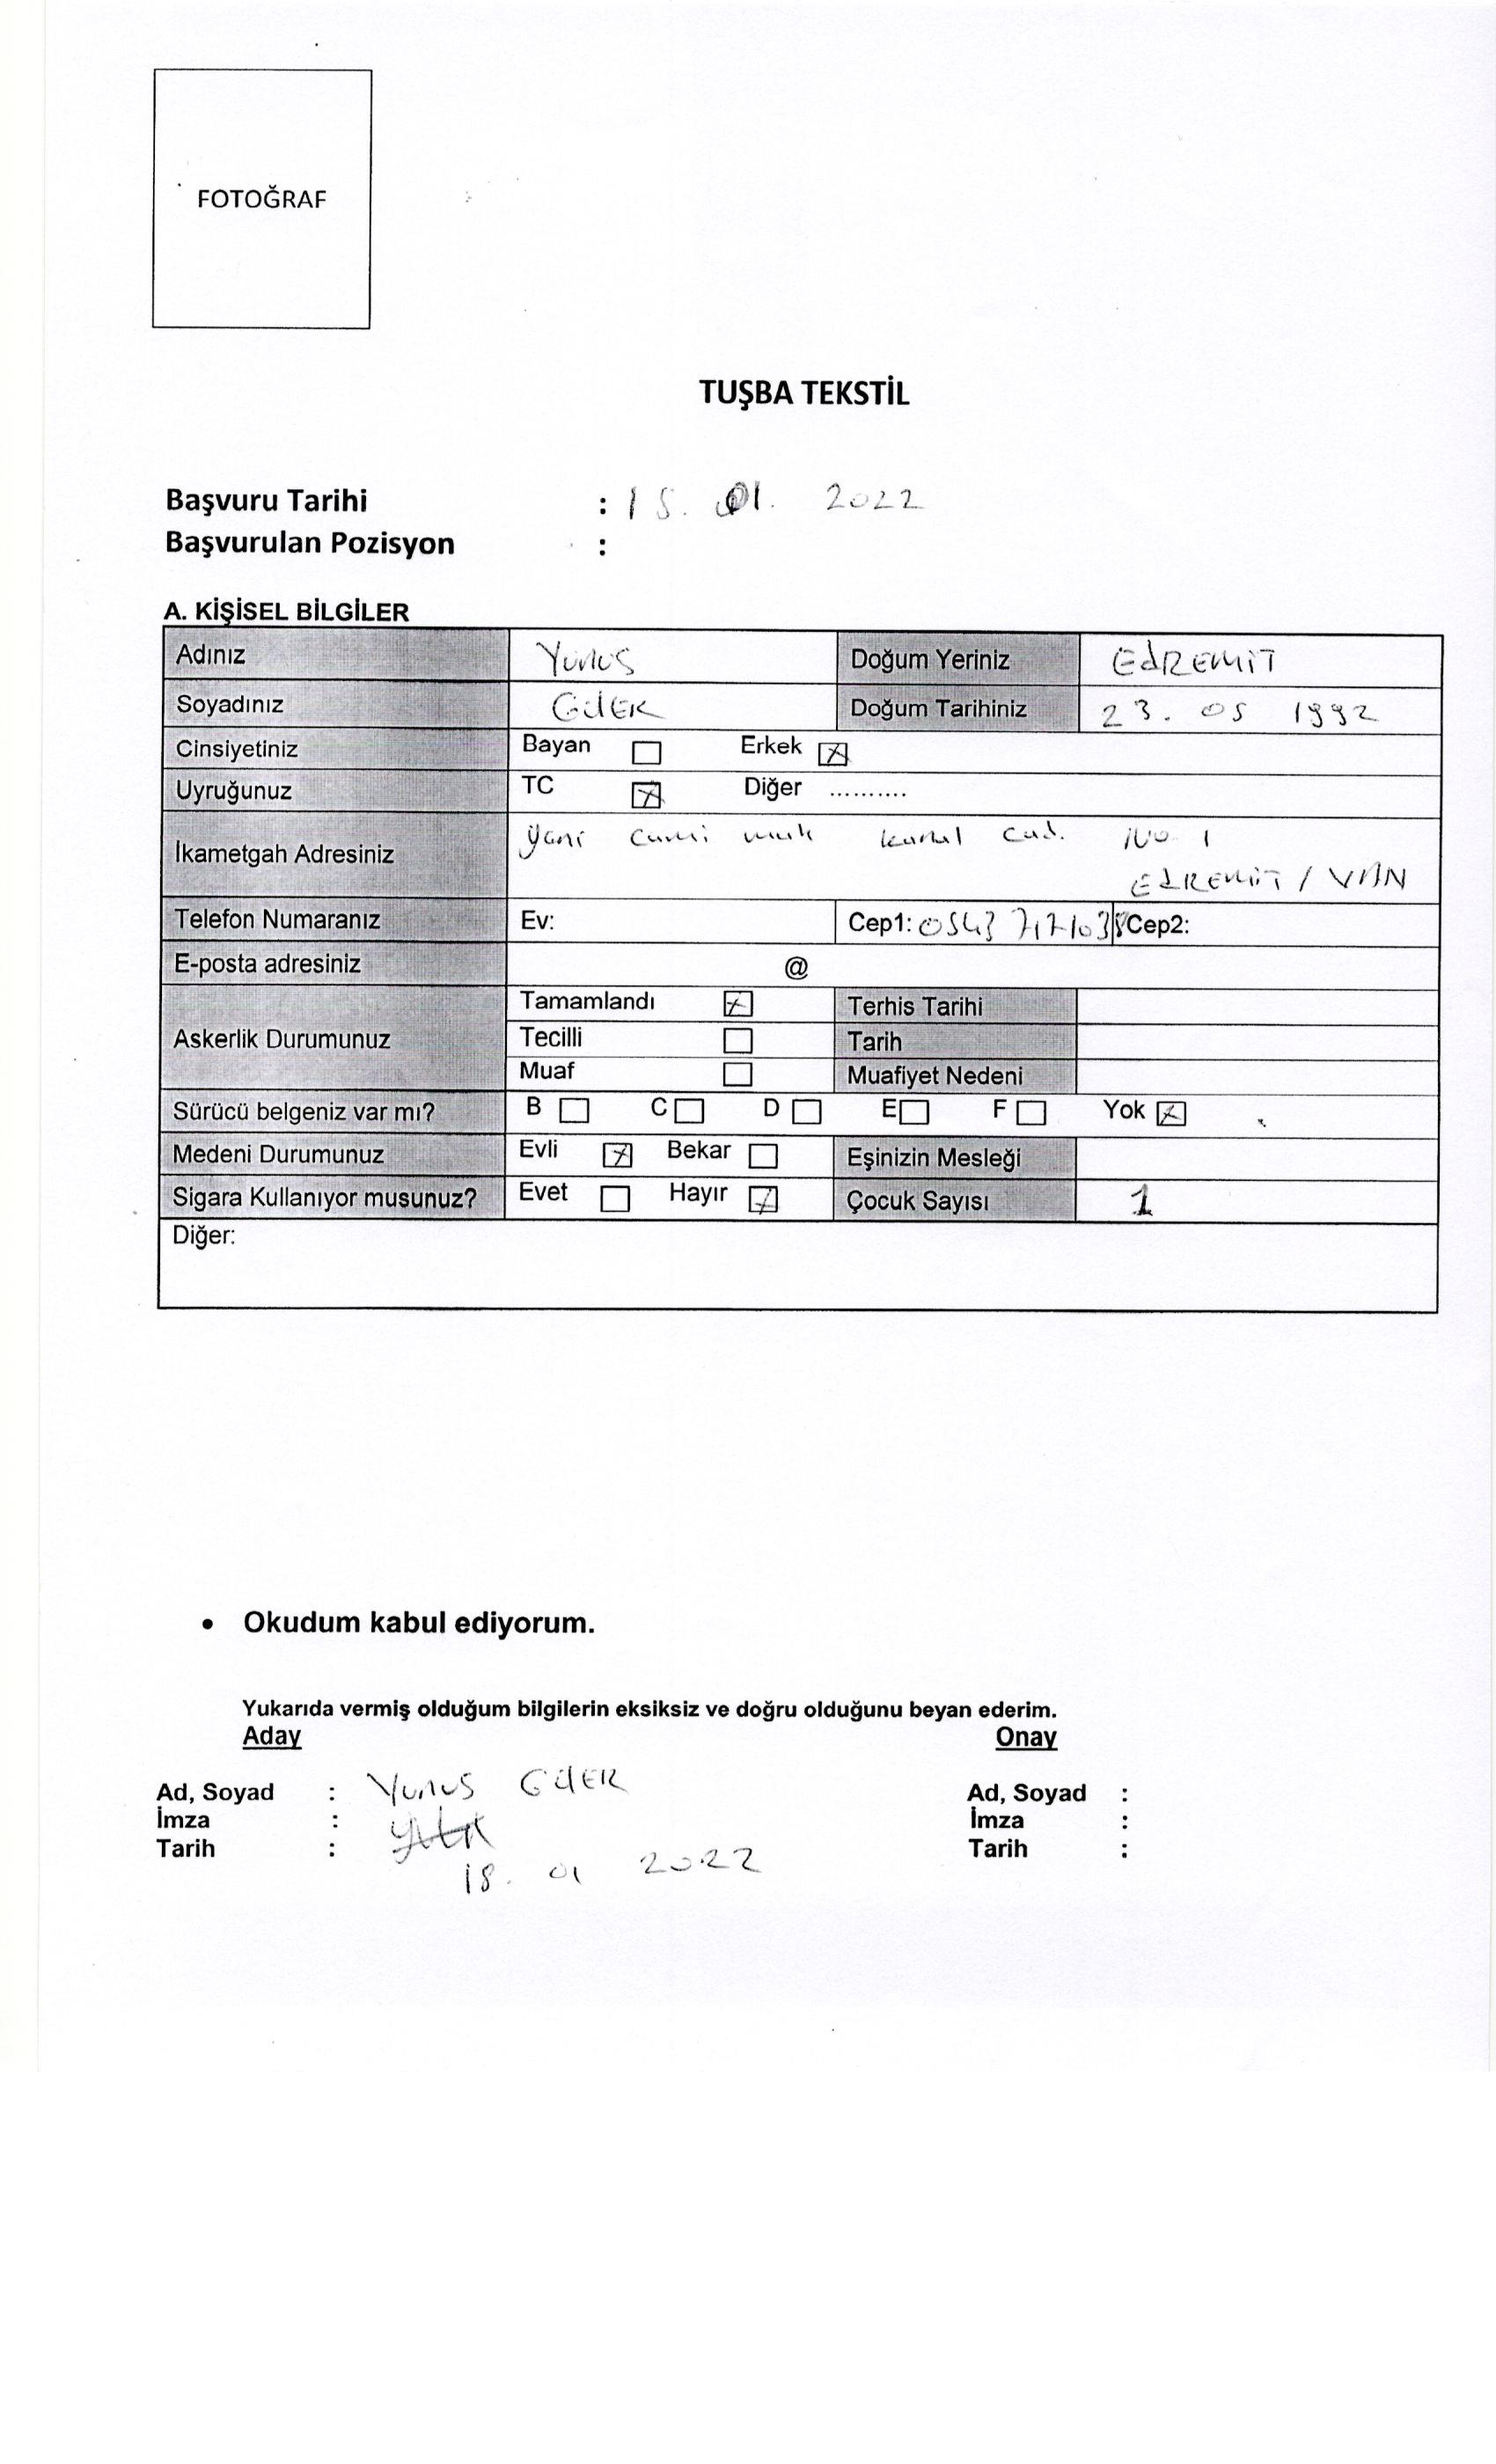 FOTOĞRAF
TUŞBA TEKSTİL
Başvuru Tarihi : 15. 01. 2022
Başvurulan Pozisyon :
A. KİŞİSEL BİLGİLER
Adınız Yunus Doğum Yeriniz EdREMİT
Soyadınız Doğum Tarihiniz 23. 05 1992
Cinsiyetiniz Bayan ☐ Erkek ☒
Uyruğunuz TC ☒ Diğer ..........
İkametgah Adresiniz yeni cami cad. No 1
EdREMİT / VAN
Telefon Numaranız Ev: Cep1: Cep2:
E-posta adresiniz @
Askerlik Durumunuz Tamamlandı ☒ Terhis Tarihi
Tecilli ☐ Tarih
Muaf ☐ Muafiyet Nedeni
Sürücü belgeniz var mı? B ☐ C ☐ D ☐ E ☐ F ☐ Yok ☒
Medeni Durumunuz Evli ☒ Bekar ☐ Eşinizin Mesleği
Sigara Kullanıyor musunuz? Evet ☐ Hayır ☒ Çocuk Sayısı 1
Diğer:
• Okudum kabul ediyorum.
Yukarıda vermiş olduğum bilgilerin eksiksiz ve doğru olduğunu beyan ederim.
Aday Onay
Ad, Soyad : Yunus Ad, Soyad :
İmza : İmza :
Tarih : 18. 01 2022 Tarih :